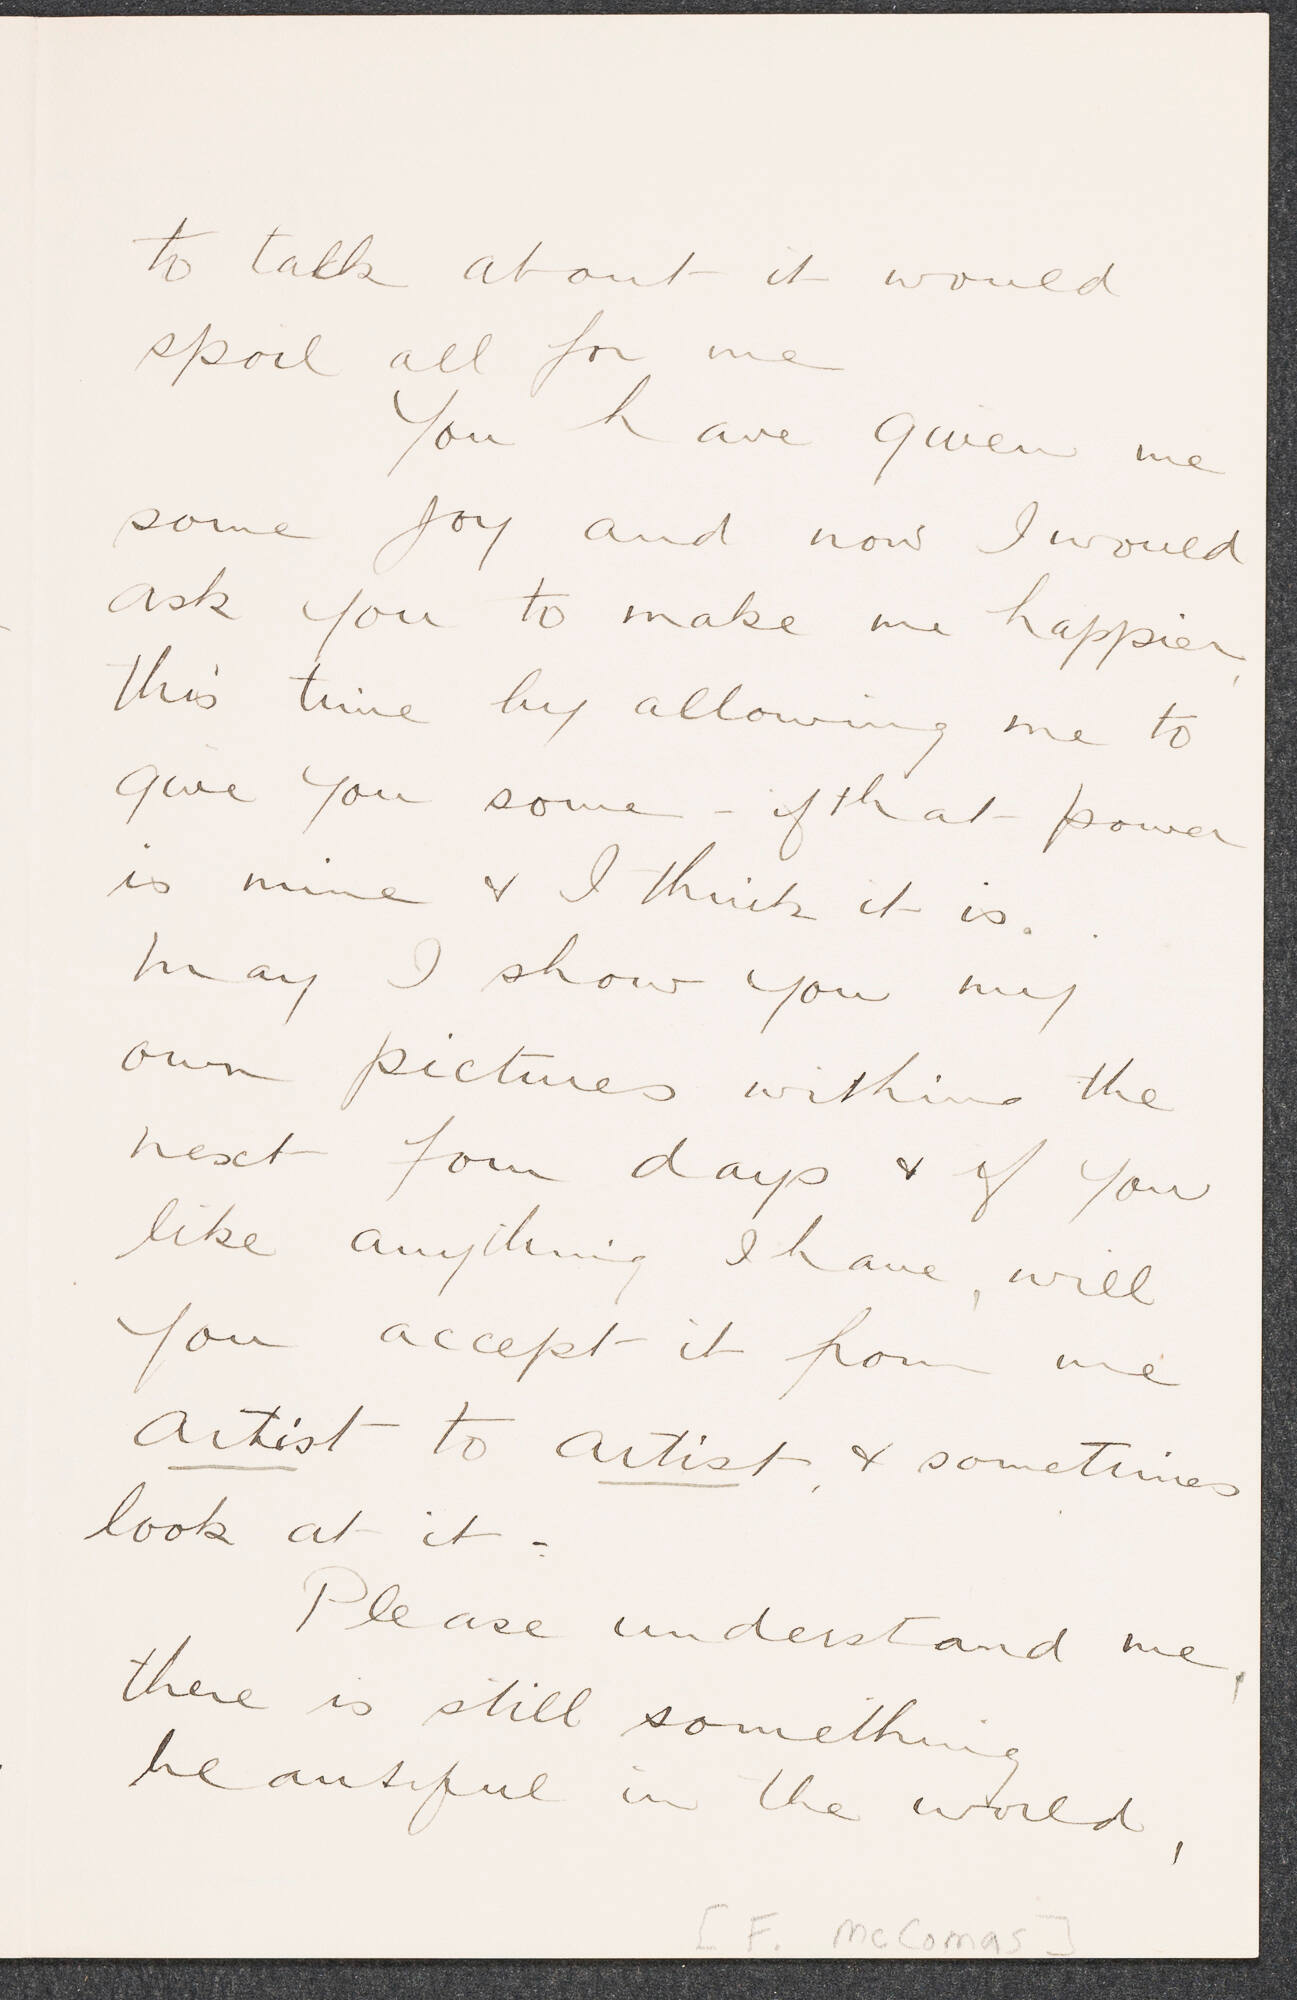 to talk about it would
spoil all for me
You have given me
some joy and now I would
ask you to make me happier,
this time by allowing me to
give you some - if that power
is mine & I think it is.
May I show you my
own pictures within the
next four days & if you
like anything I have, will
you accept it from me
artist to artist, & sometimes
look at it -
Please understand me,
there is still something
beautiful in the world,
[F. McComas]